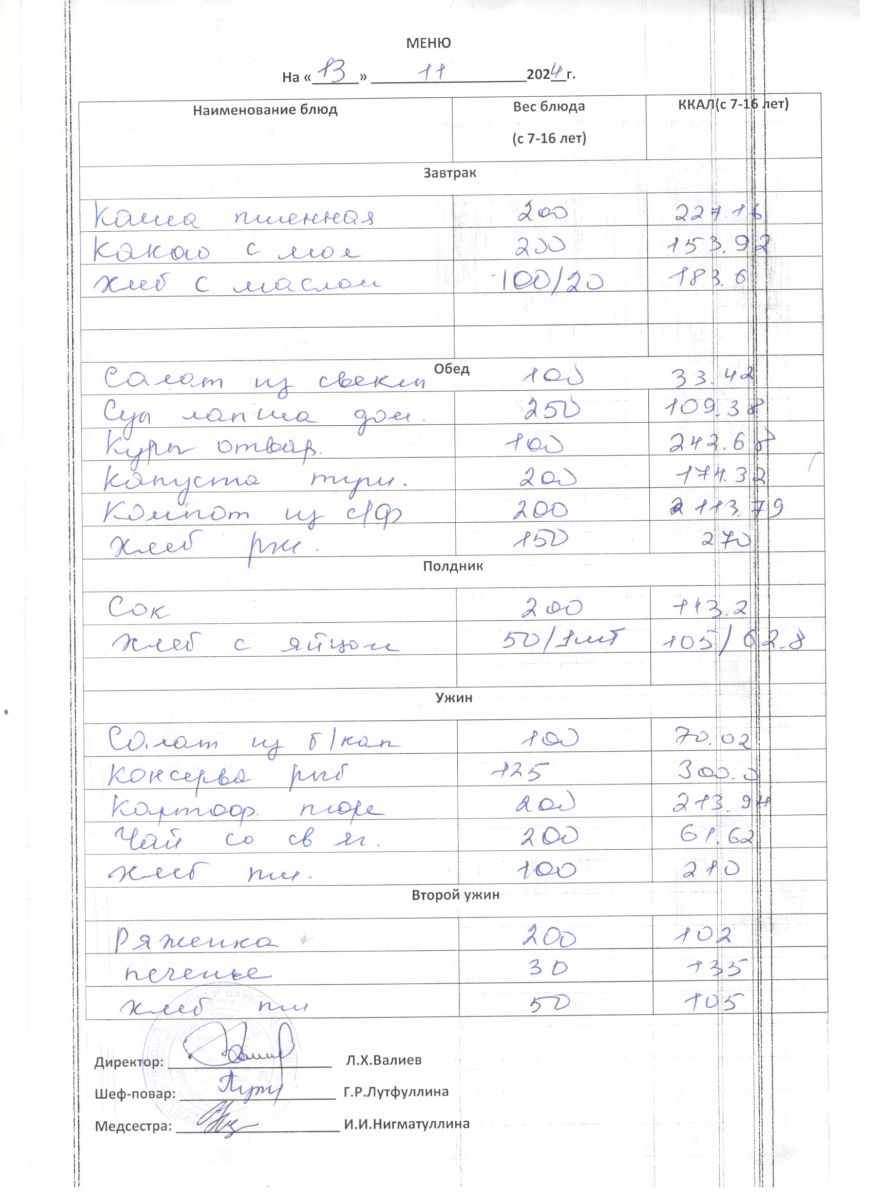 МЕНЮ
На «13» 11 2024 г.
Наименование блюд Вес блюда (с 7-16 лет) ККАЛ(с 7-16 лет)
Завтрак
Каша пшенная 200 227.16
Какао с мол 200 153.92
Хлеб с маслом 100/20 183.6
Обед
Салат из свеклы 100 33.42
Суп лапша дом. 250 109.38
Куры отвар. 100 242.68
Капуста туш. 200 174.32
Компот из с/ф 200 113.79
Хлеб рж. 150 270
Полдник
Сок 200 113.2
Хлеб с яйцом 50/1шт 105/62.8
Ужин
Салат из б/кап 100 70.02
Консерва рыб 125 300.0
Картоф. пюре 200 213.94
Чай со св яг. 200 61.62
Хлеб пш. 100 210
Второй ужин
Ряженка 200 102
печенье 30 135
Хлеб пш 50 105
Директор: Л.Х.Валиев
Шеф-повар: Г.Р.Лутфуллина
Медсестра: И.И.Нигматуллина